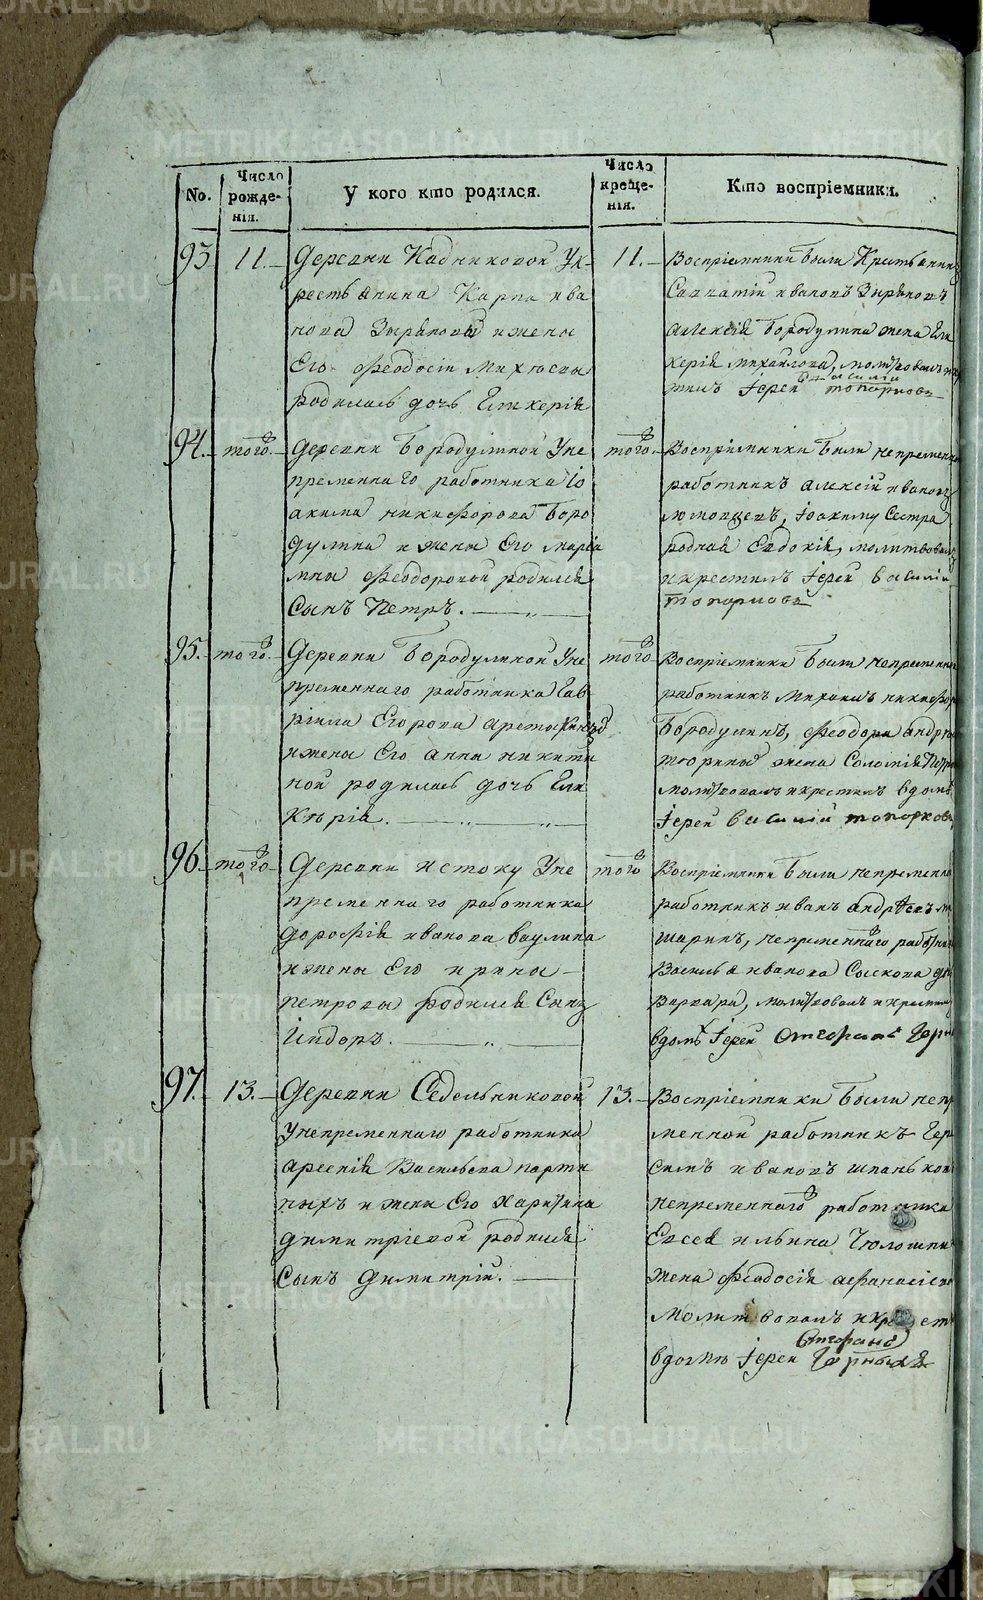 No.
Число рожде-
нія.
У кого кто родился.
Число креще-
нія.
Кто воспріемники.
93 11.
Деревни Кадниковой у к-
рестьянина Карпа Ива
нова Зырянова и жены
Его Феодосіи
родилась дочь Гликерія
11.
Воспріемники были Крестьянинъ
Савватій Ивановъ Зыряновъ
Алексія Бородулина жена Гли
керія Михайлова, молитвовалъ и кре
стилъ Іерей Василій Топорковъ
94. того.
Деревни Бородулиной у не
пременнаго работника Іо
акима Никифорова Боро
дулина и жены Его Маріа
мны Феодоровой родился
сынъ Петръ.
того
Воспріемники были непременн
работникъ Алексій Ивановъ
Іоакиму сестра
родная Евдокія, молитвовалъ
и крестилъ Іерей Василій
Топорковъ
95. того.
Деревни Бородулиной у не
пременнаго работника Гав
ріила Егорова
и жены Его Анны Никити
ной родилась дочь Гли
керія.
того
Воспріемники были непременн
работникъ Михаилъ Никифор
Бородулинъ, Феодора Андрее
жена Соломія Петр
молитвовалъ и крестилъ в доме
Іерей Василій Топорков
96. того
Деревни Истоку у не
пременнаго работника
Дорофія Иванова Ваулина
и жены Его Ирины
Петровы родился сынъ
Исидоръ.
того
Воспріемники были непременн
работникъ Иванъ Андреевъ
шаринъ, непременнаго работника
Василья Иванова Сыскова
Варвара, молитвовалъ и крестилъ
в домѣ Іерей Стефанъ Черн
97. 13.
Деревни Седельниковой
у непременнаго работника
Арсенія Васильева Парти
ныхъ и жены Его Харитина
Димитріевой родился
сынъ Димитрій.
13.
Воспріемники были непре
менной работникъ Гера
симъ Ивановъ Шпаньков
непременнаго работника
Евсея Ильина
жена Феодосія Афанасіева
молитвовалъ и крест
в доме Іерей Стефанъ Черныхъ
METRIKI.GASO-URAL.RU